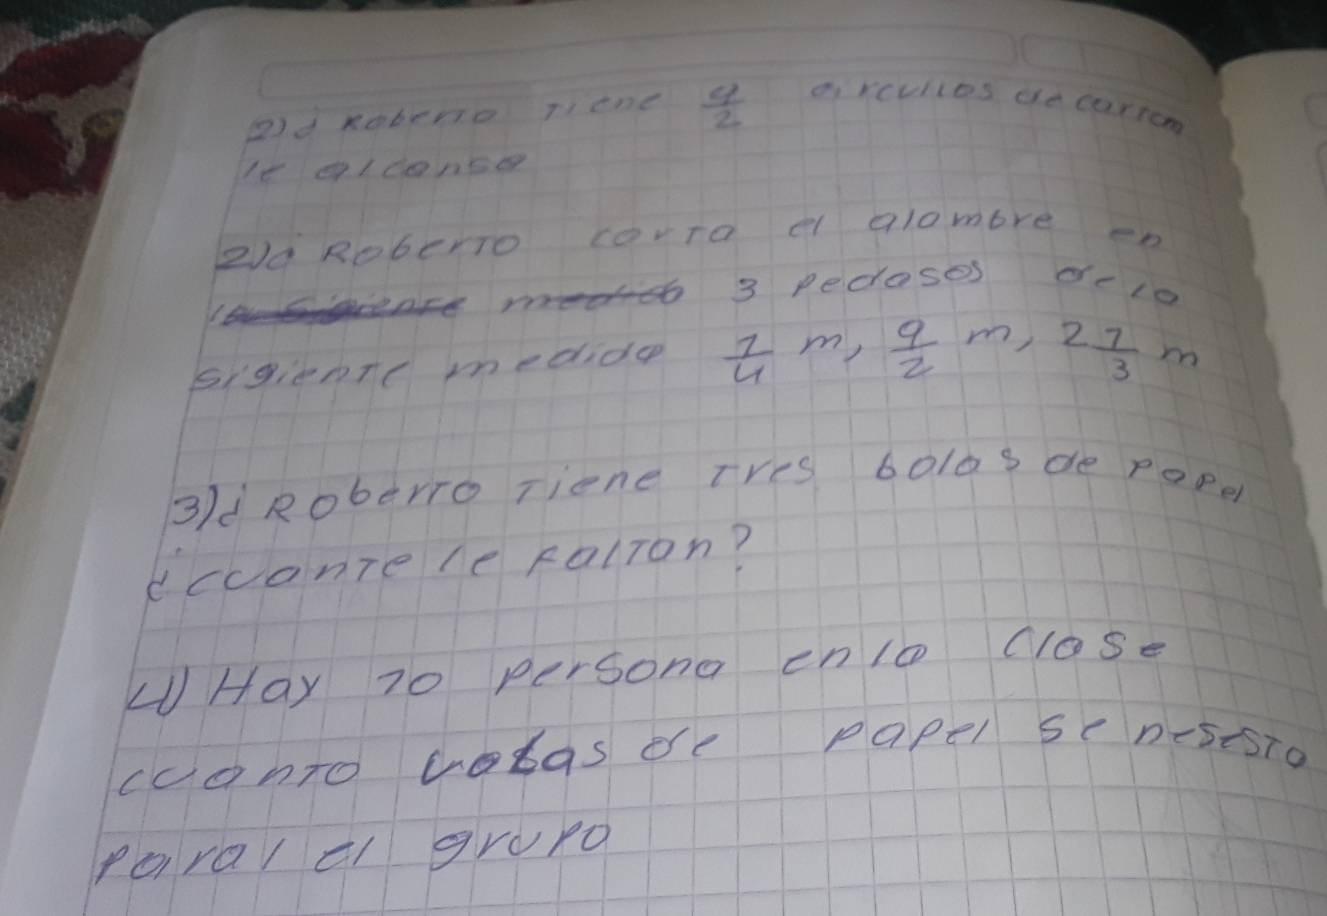 2)¿ Roberto Tiene 9/2 circulios de carton
le alcansa
2)¿ Roberto corta el alambre en
la sigiente medida 3 pedasos de la
sigiente medida 1/4 m, 9/2 m, 2 1/3 m
3)¿ Roberto Tiene Tres bolas de papel
¿cuante le falTan?
4) Hay 10 persona en la clase
cuanto de papel se nesesta
paral el grupo